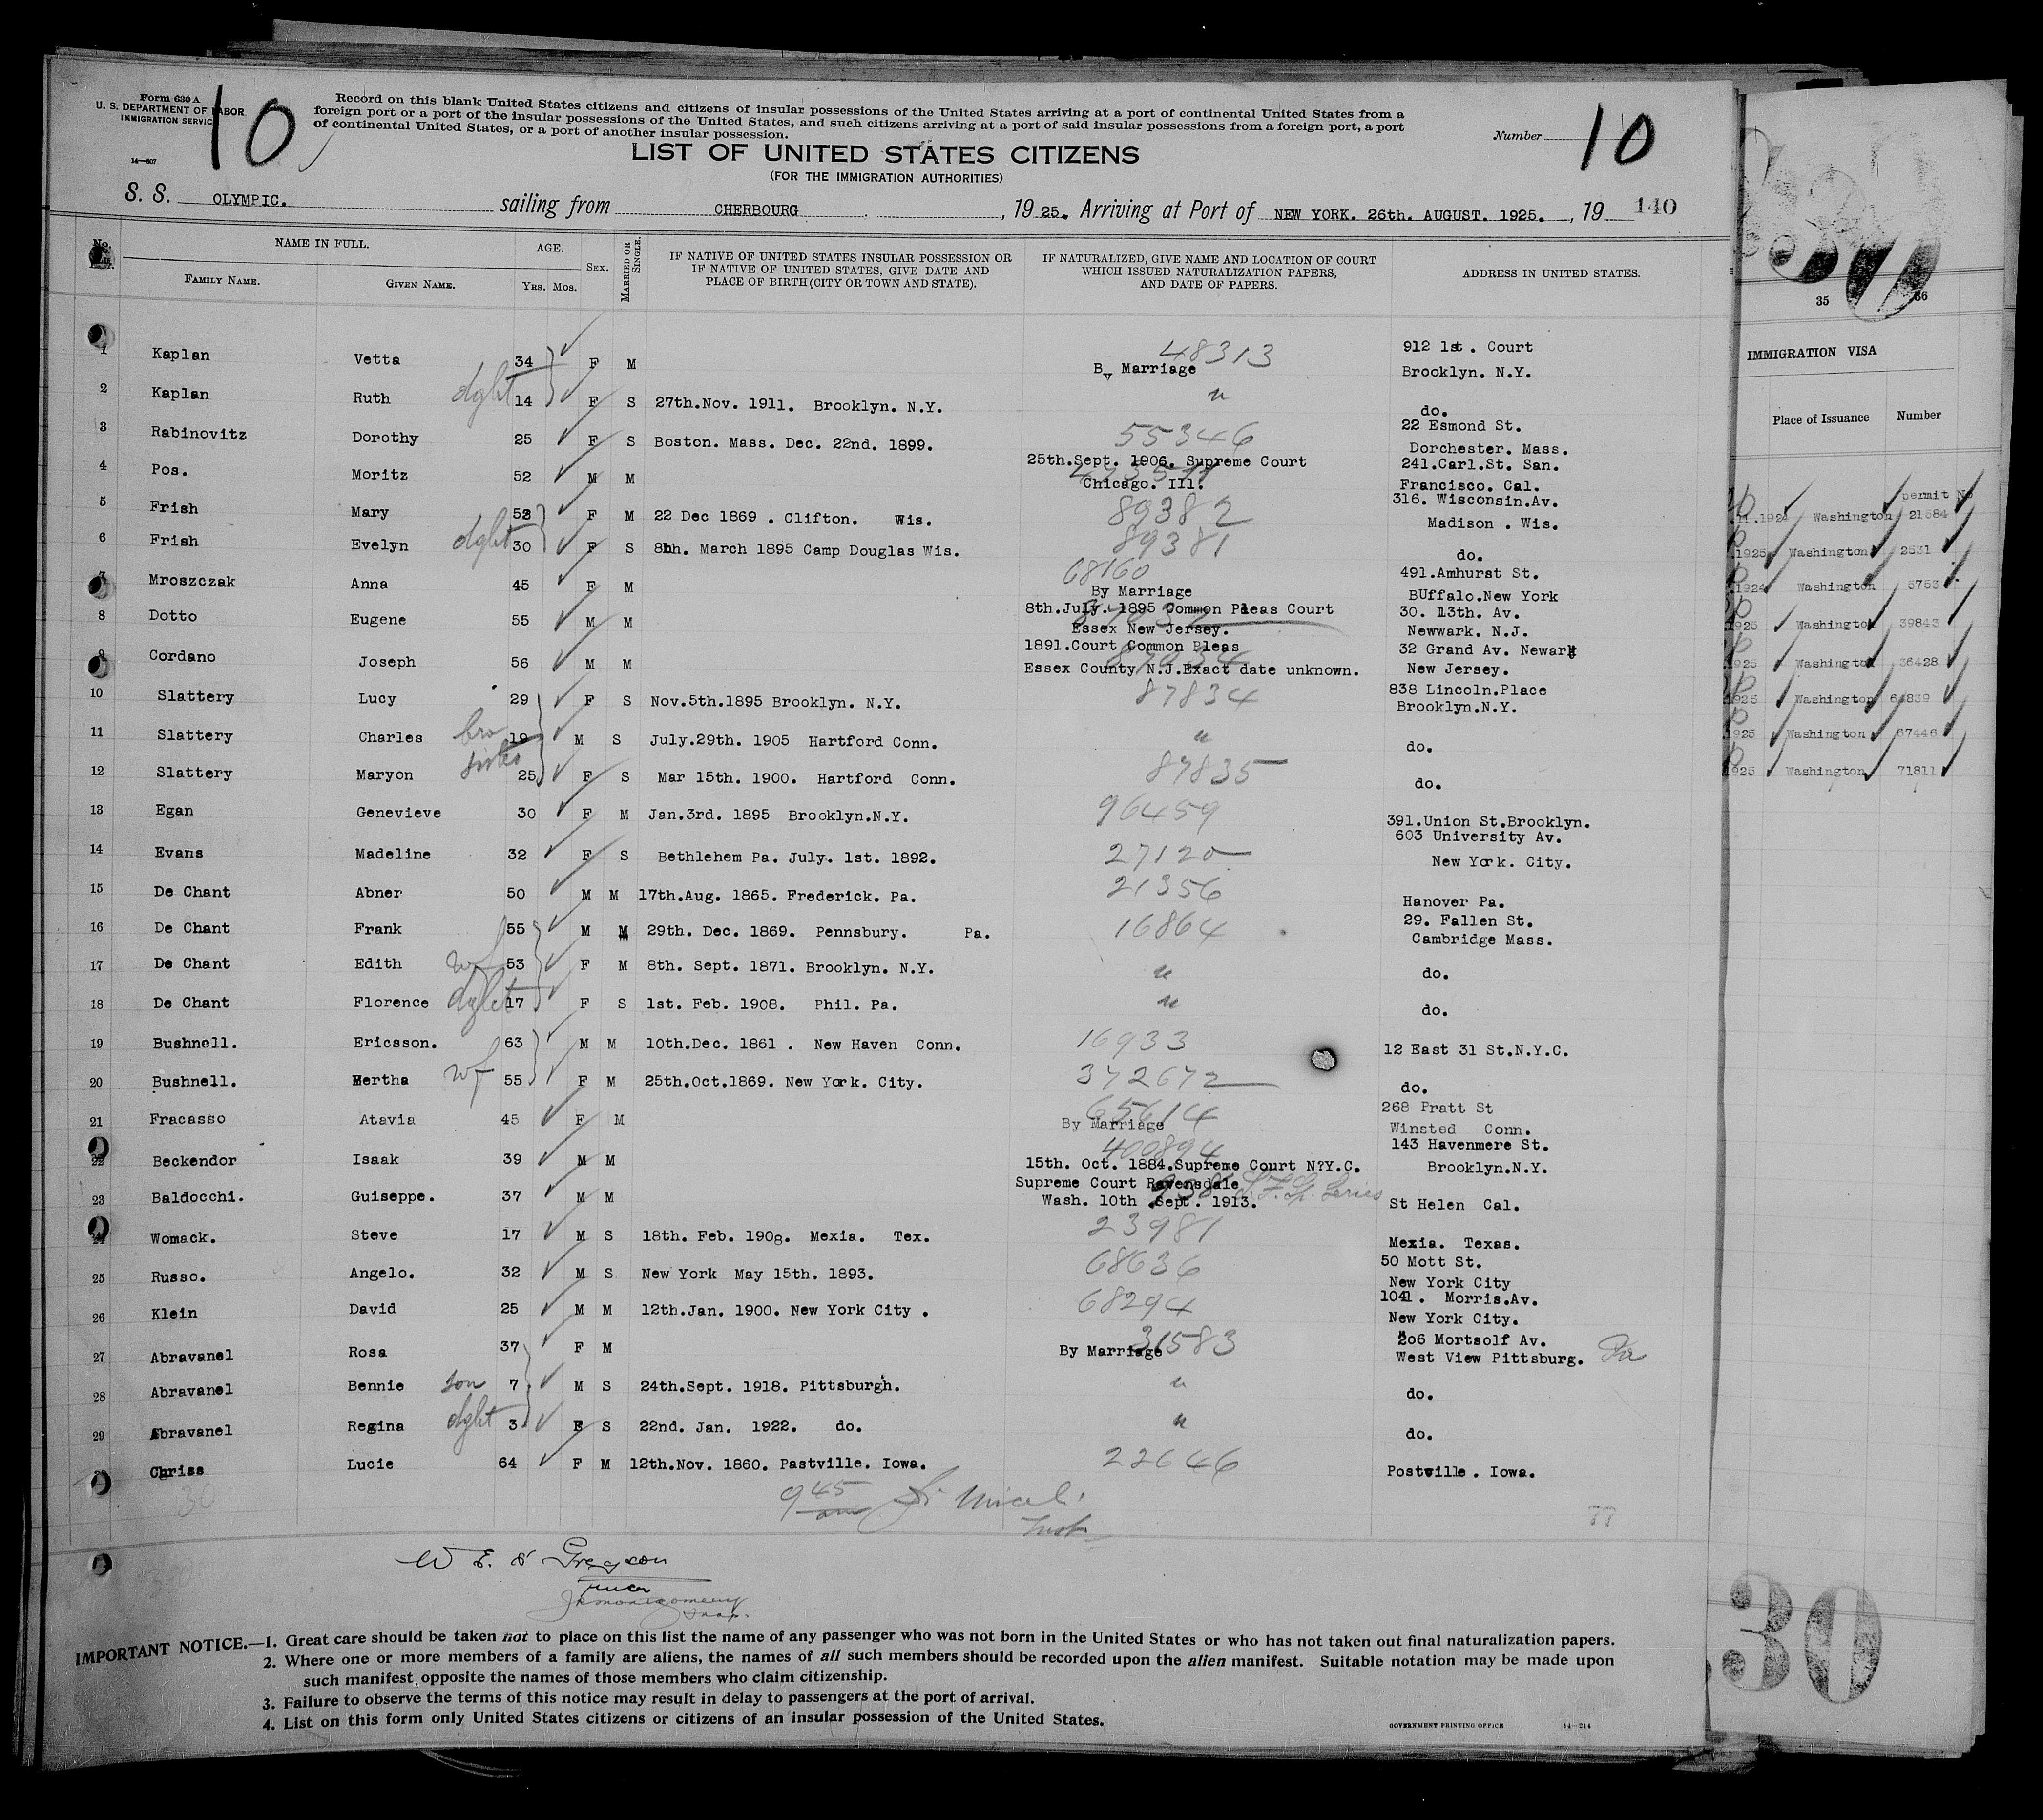 Form 630 A
U. S. DEPARTMENT OF LABOR
IMMIGRATION SERVICE
14—607
10
Record on this blank United States citizens and citizens of insular possessions of the United States arriving at a port of continental United States from a
foreign port or a port of the insular possessions of the United States, and such citizens arriving at a port of said insular possessions from a foreign port, a port
of continental United States, or a port of another insular possession.
Number 10
LIST OF UNITED STATES CITIZENS
(FOR THE IMMIGRATION AUTHORITIES)
S. S. OLYMPIC. sailing from CHERBOURG , 1925. Arriving at Port of NEW YORK. 26th. AUGUST. 1925. , 19 140
NAME IN FULL. AGE. SEX. MARRIED OR SINGLE. IF NATIVE OF UNITED STATES INSULAR POSSESSION OR IF NATIVE OF UNITED STATES, GIVE DATE AND PLACE OF BIRTH (CITY OR TOWN AND STATE). IF NATURALIZED, GIVE NAME AND LOCATION OF COURT WHICH ISSUED NATURALIZATION PAPERS, AND DATE OF PAPERS. ADDRESS IN UNITED STATES.
FAMILY NAME. GIVEN NAME. Yrs. Mos.
1 Kaplan Vetta 34 F M 48313 By Marriage 912 1st. Court Brooklyn. N.Y.
2 Kaplan Ruth dght 14 F S 27th.Nov. 1911. Brooklyn. N.Y. " do.
3 Rabinovitz Dorothy 25 F S Boston. Mass. Dec. 22nd. 1899. 55346 22 Esmond St. Dorchester. Mass.
4 Pos. Moritz 52 M M 25th.Sept. 1906. Supreme Court Chicago. Ill. 241.Carl.St. San. Francisco. Cal.
5 Frish Mary 53 F M 22 Dec 1869 . Clifton. Wis. 89382 316. Wisconsin.Av. Madison . Wis.
6 Frish Evelyn dght 30 F S 8th. March 1895 Camp Douglas Wis. 89381 do.
7 Mroszczak Anna 45 F M 68160 By Marriage 491.Amhurst St. BUffalo.New York
8 Dotto Eugene 55 M M 8th.July. 1895 Common Pleas Court Essex New Jersey. 30. 13th. Av. Newwark. N.J.
9 Cordano Joseph 56 M M 1891.Court Common Pleas Essex County N.J.Exact date unknown. 32 Grand Av. Newark New Jersey.
10 Slattery Lucy 29 F S Nov.5th.1895 Brooklyn. N.Y. 87834 838 Lincoln.Place Brooklyn.N.Y.
11 Slattery Charles bro 19 M S July.29th. 1905 Hartford Conn. " do.
12 Slattery Maryon sister 25 F S Mar 15th. 1900. Hartford Conn. 87835 do.
13 Egan Genevieve 30 F M Jan.3rd. 1895 Brooklyn.N.Y. 96459 391.Union St.Brooklyn.
14 Evans Madeline 32 F S Bethlehem Pa. July. 1st. 1892. 27120 603 University Av. New York. City.
15 De Chant Abner 50 M M 17th.Aug. 1865. Frederick. Pa. 21356 Hanover Pa.
16 De Chant Frank 55 M M 29th. Dec. 1869. Pennsbury. Pa. 16864 29. Fallen St. Cambridge Mass.
17 De Chant Edith wf 53 F M 8th. Sept. 1871. Brooklyn. N.Y. " do.
18 De Chant Florence dght 17 F S 1st. Feb. 1908. Phil. Pa. " do.
19 Bushnell. Ericsson. 63 M M 10th.Dec. 1861 . New Haven Conn. 16933 12 East 31 St.N.Y.C.
20 Bushnell. Bertha wf 55 F M 25th.Oct.1869. New York. City. 372672 do.
21 Fracasso Atavia 45 F M 65614 By Marriage 268 Pratt St Winsted Conn.
22 Beckendor Isaak 39 M M 400894 15th. Oct. 1884.Supreme Court N?Y.C. 143 Havenmere St. Brooklyn.N.Y.
23 Baldocchi. Guiseppe. 37 M M Supreme Court Ravensdale Wash. 10th .Sept. 1913. St Helen Cal.
24 Womack. Steve 17 M S 18th. Feb. 1908. Mexia. Tex. 23981 Mexia. Texas.
25 Russo. Angelo. 32 M S New York May 15th. 1893. 68636 50 Mott St. New York City
26 Klein David 25 M M 12th.Jan. 1900. New York City . 68294 1041. Morris.Av. New York City.
27 Abravanel Rosa 37 F M 31583 By Marriage 206 Mortsolf Av. West View Pittsburg. Pa
28 Abravanel Bennie son 7 M S 24th.Sept. 1918. Pittsburgh. " do.
29 Abravanel Regina dght 3 F S 22nd. Jan. 1922. do. " do.
Chriss Lucie 64 F M 12th.Nov. 1860. Pastville. Iowa. 22646 Postville . Iowa.
30
9 45 am
IMPORTANT NOTICE.—1. Great care should be taken not to place on this list the name of any passenger who was not born in the United States or who has not taken out final naturalization papers.
2. Where one or more members of a family are aliens, the names of all such members should be recorded upon the alien manifest. Suitable notation may be made upon
such manifest opposite the names of those members who claim citizenship.
3. Failure to observe the terms of this notice may result in delay to passengers at the port of arrival.
4. List on this form only United States citizens or citizens of an insular possession of the United States.
GOVERNMENT PRINTING OFFICE 14—214
35 36
IMMIGRATION VISA
Place of Issuance Number
permit No
1924 Washington 21684
1925 Washington 2531
1924 Washington 5753
1925 Washington 39843
1925 Washington 36428
1925 Washington 64839
1925 Washington 67446
1925 Washington 71811
30